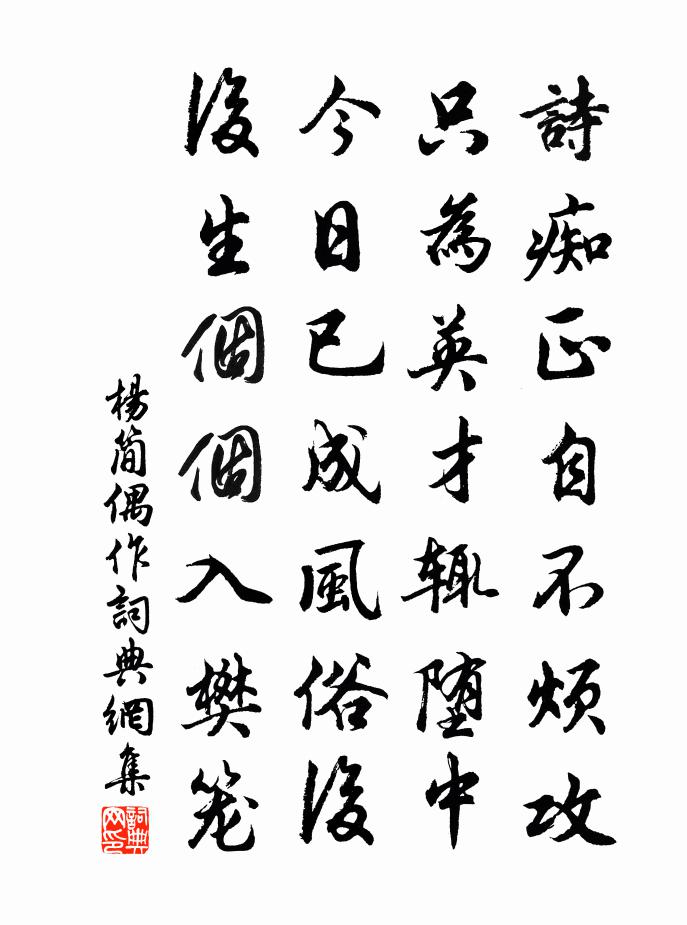 詩痴正自不煩攻
只為英才輙堕中
今日已成風俗後
後生個個入樊笼
楊简偶作詞典網集
詞典网印